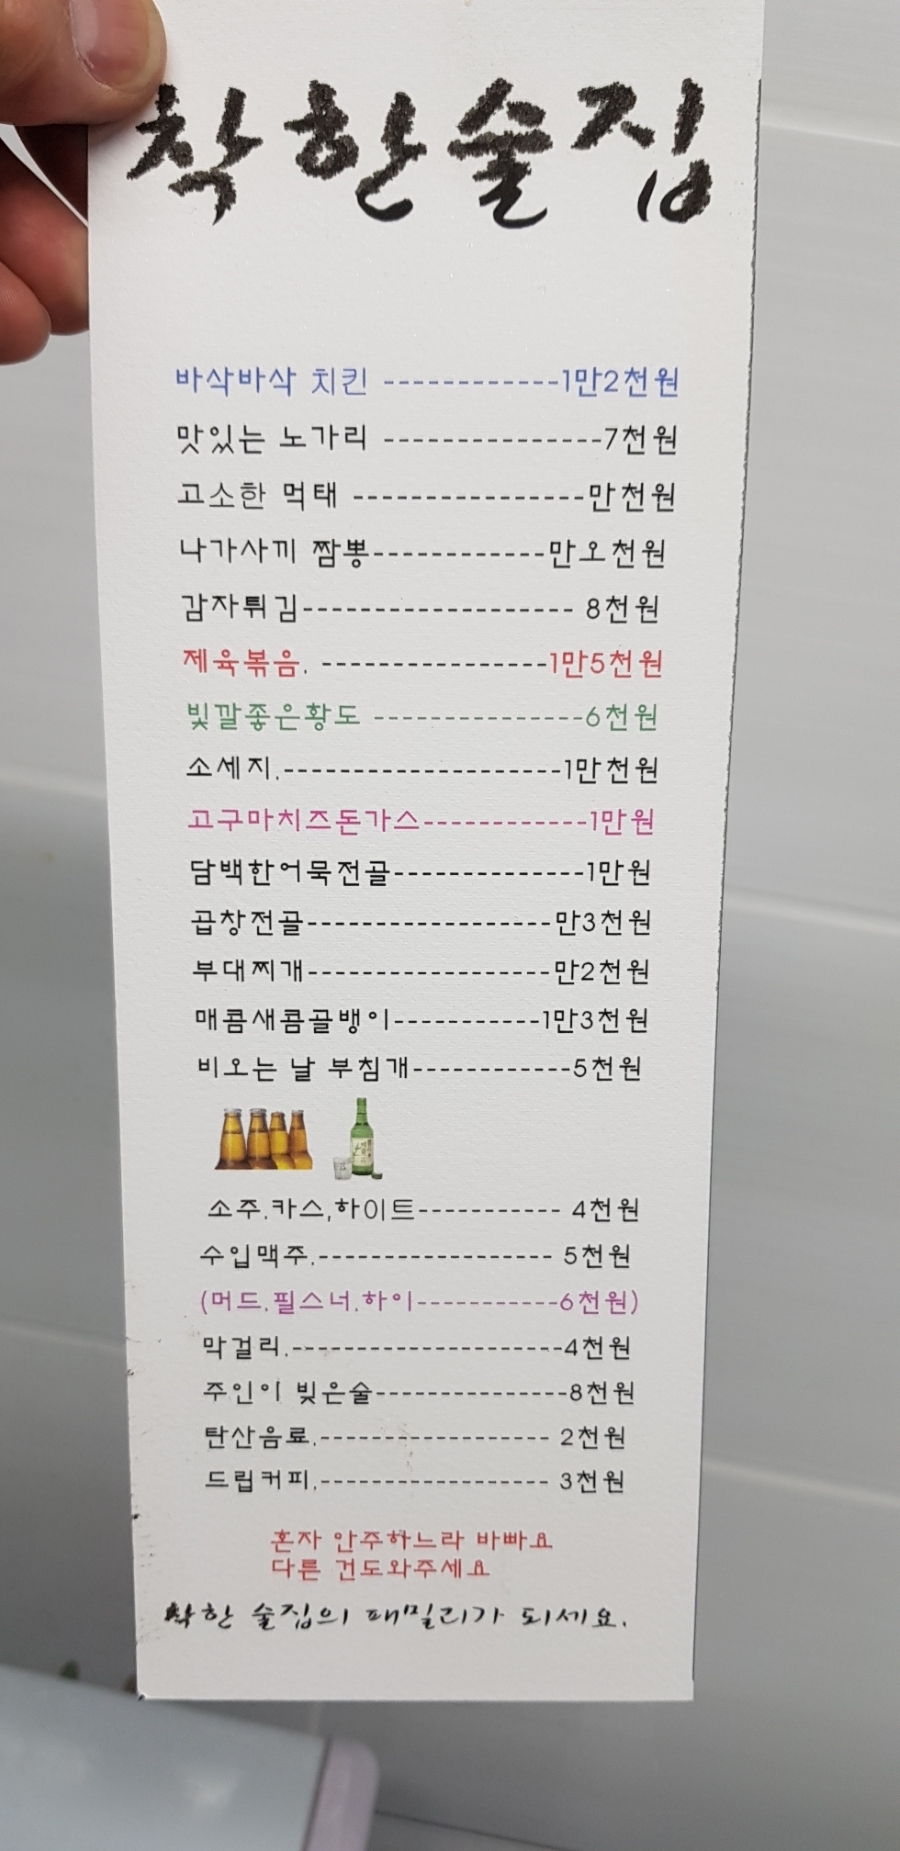 착한술집
바삭바삭 치킨 ------------1만2천원
맛있는 노가리 ---------------7천원
고소한 먹태 ----------------만천원
나가사끼 짬뽕------------만오천원
감자튀김------------------- 8천원
제육볶음. ----------------1만5천원
빛깔좋은황도 ---------------6천원
소세지.--------------------1만천원
고구마치즈돈가스------------1만원
담백한어묵전골--------------1만원
곱창전골------------------만3천원
부대찌개------------------만2천원
매콤새콤골뱅이-----------1만3천원
비오는 날 부침개------------5천원
소주.카스,하이트----------- 4천원
수입맥주.------------------ 5천원
(머드.필스너.하이-----------6천원)
막걸리.--------------------4천원
주인이 빚은술---------------8천원
탄산음료.------------------ 2천원
드립커피.------------------ 3천원
혼자 안주하느라 바빠요
다른 건도와주세요
착한 술집의 패밀리가 되세요.